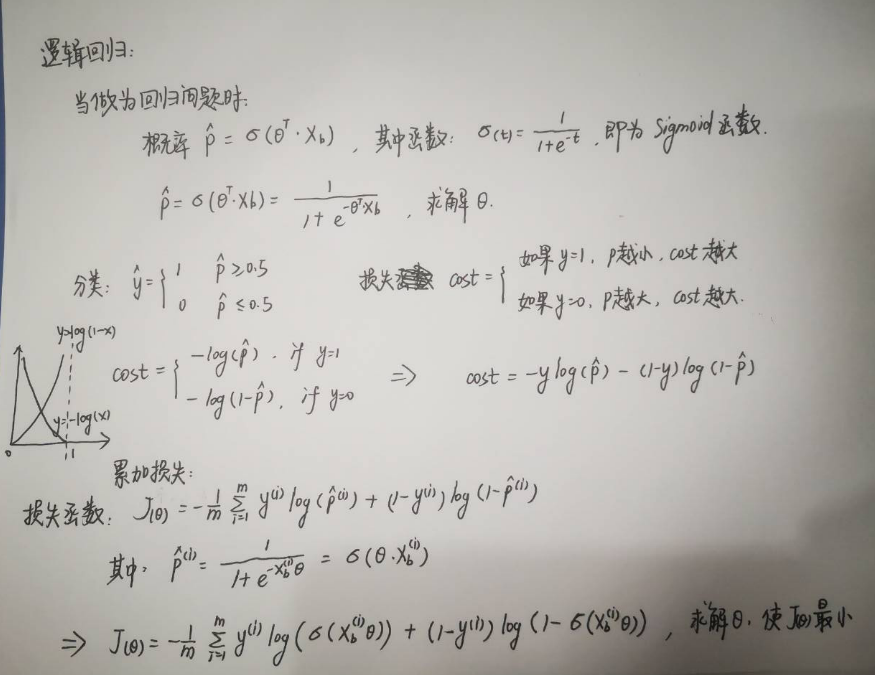 逻辑回归:
当做为回归问题时:
概率 p̂ = σ(θᵀ·X_b), 其中函数: σ(t) = 1/(1+e^{-t}), 即为 Sigmoid 函数.
p̂ = σ(θᵀ·Xb) = 1/(1+e^{-θᵀXb}), 求解 θ.
分类: ŷ = { 1 p̂ ≥ 0.5
0 p̂ ≤ 0.5
损失 cost = { 如果 y=1, p越小, cost 越大
如果 y=0, p越大, cost 越大.
y=-log(1-x)
y=-log(x)
0 1
cost = { -log(p̂). if y=1
-log(1-p̂), if y=0
=> cost = -y log(p̂) - (1-y) log(1-p̂)
累加损失:
损失函数: J(θ) = -1/m Σ_{i=1}^{m} y^{(i)} log(p̂^{(i)}) + (1-y^{(i)}) log(1-p̂^{(i)})
其中, p̂^{(i)} = 1/(1+e^{-X_b^{(i)}θ}) = σ(θ·X_b^{(i)})
=> J(θ) = -1/m Σ_{i=1}^{m} y^{(i)} log(σ(X_b^{(i)}θ)) + (1-y^{(i)}) log(1-σ(X_b^{(i)}θ)), 求解θ, 使J(θ)最小